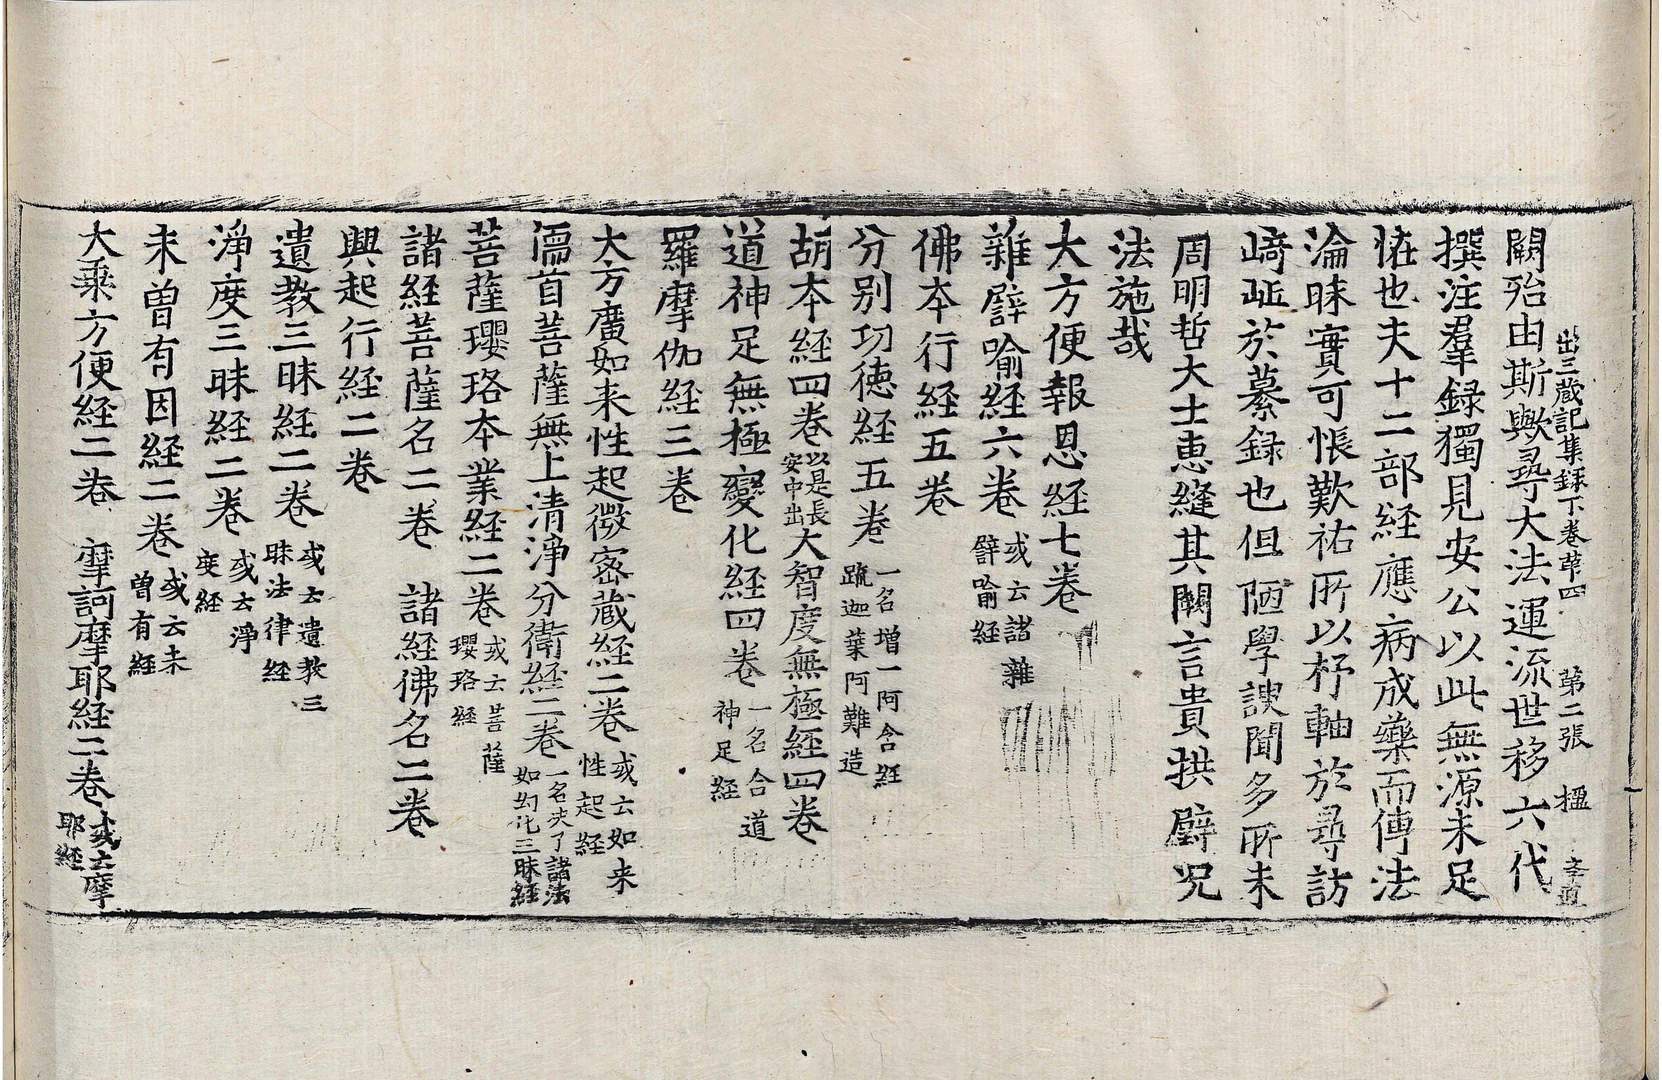 出三蔵記集録下卷苐四 第二張 楹
闕殆由斯歟㝷大法運流世移六代
撰注羣録獨見安公以此無源未足
恠也夫十二部経應病成藥而傳法
淪昧實可悵歎祐所以杼軸於㝷訪
﨑嶇於纂録也但陋學謏聞多所未
周明哲大士惠縫其闕言貴拱璧况
法施哉
大方便報恩経七卷
雜譬喻経六卷 或云諸雜譬喻経
佛本行経五卷
分别功徳経五卷 一名增一阿含経䟽迦葉阿難造
胡本経四卷 以是長安中出 大智度無極経四卷
道神足無極變化経四卷 一名合道神足経
羅摩伽経三卷
大方廣如来性起微密蔵経二卷 或云如来性起経
濡首菩薩無上清淨分衛経二卷 一名决了諸法如幻化三昧経
菩薩瓔珞本業経二卷 或云菩薩瓔珞経
諸経菩薩名二卷 諸経佛名二卷
興起行経二卷
遺教三昧経二卷 或云遺教三昧法律経
淨度三昧経二卷 或云淨度経
未曽有因経二卷 或云未曽有経
大乗方便経二卷 摩訶摩耶経二卷 或云摩耶経